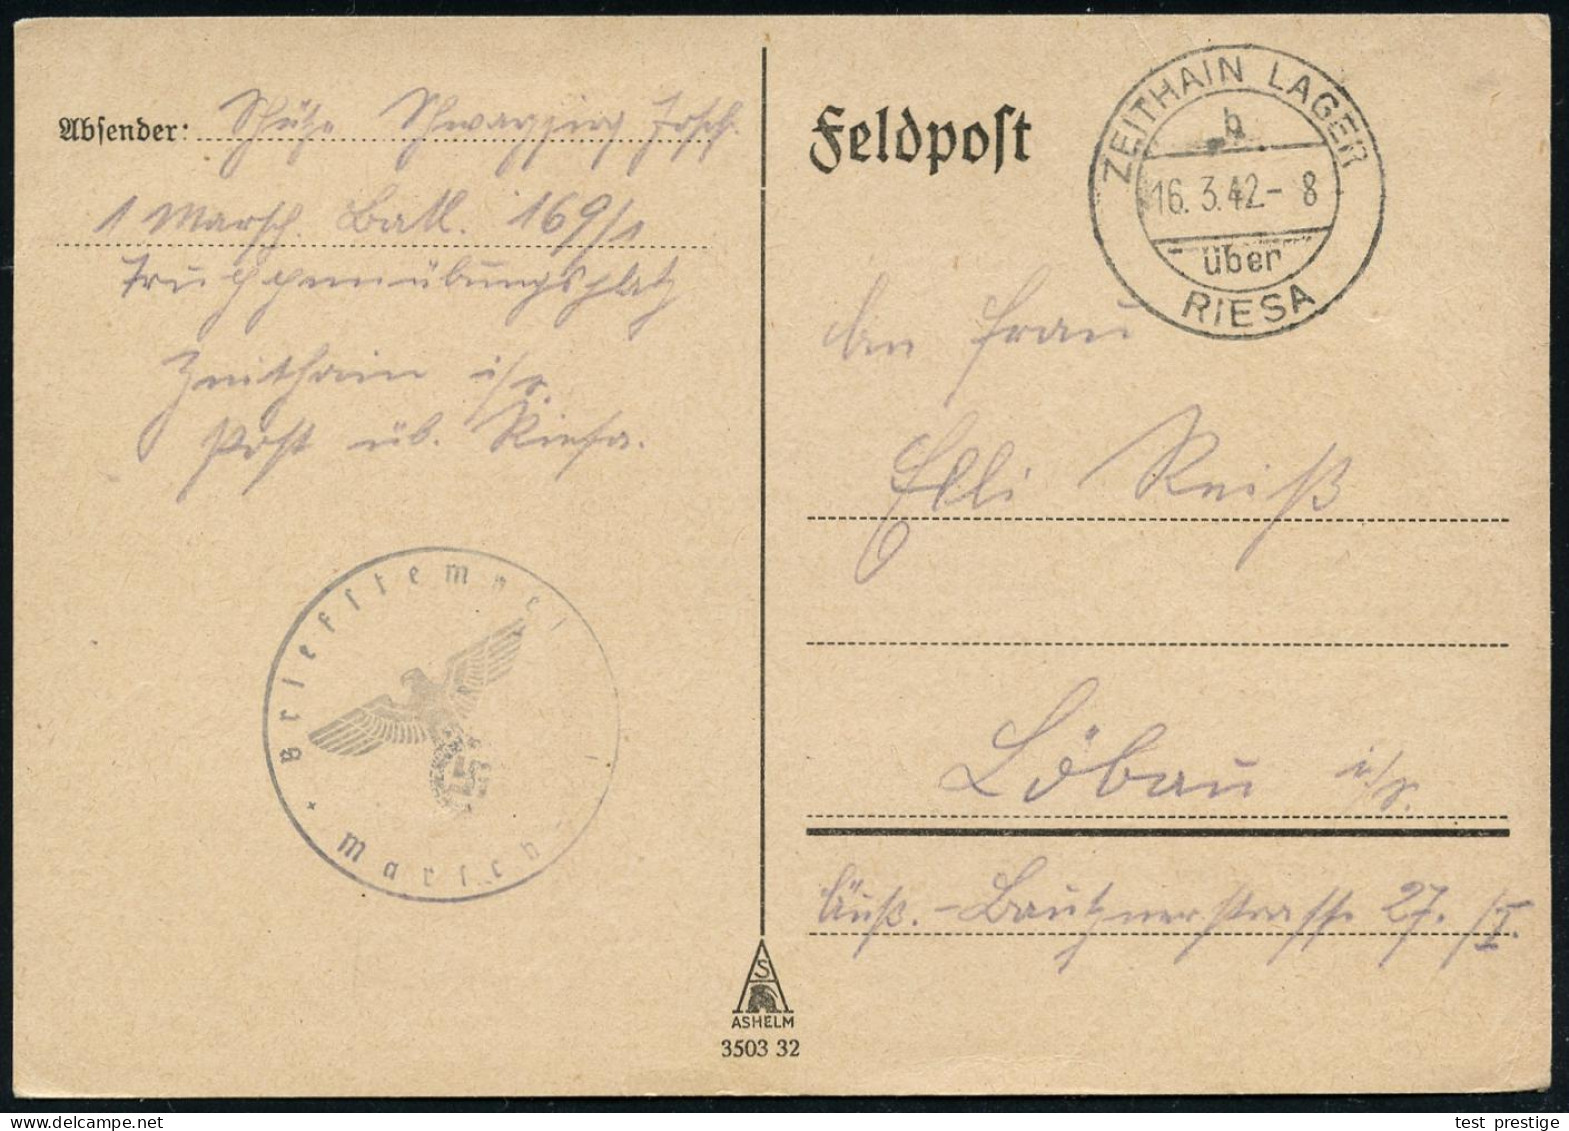 Absender: Schütze Josef
1 Marsch. Batl. 169/1
Truppenübungsplatz
Zeithain i/S.
Post üb. Riesa.
Briefstempel
Marsch
Feldpost
ZEITHAIN LAGER
b
16. 3. 42 - 8
über
RIESA
An Frau
Elli Reiß
Löbau i/S.
Äuß. - Bautznerstrasse 27. /I.
S
ASHELM
3503 32
test prestige